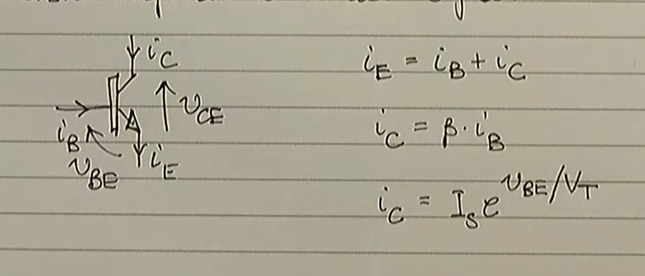 i_C
v_CE
i_B
v_BE
i_E
i_E = i_B + i_C
i_C = β · i_B
i_C = I_S e^{v_BE/V_T}